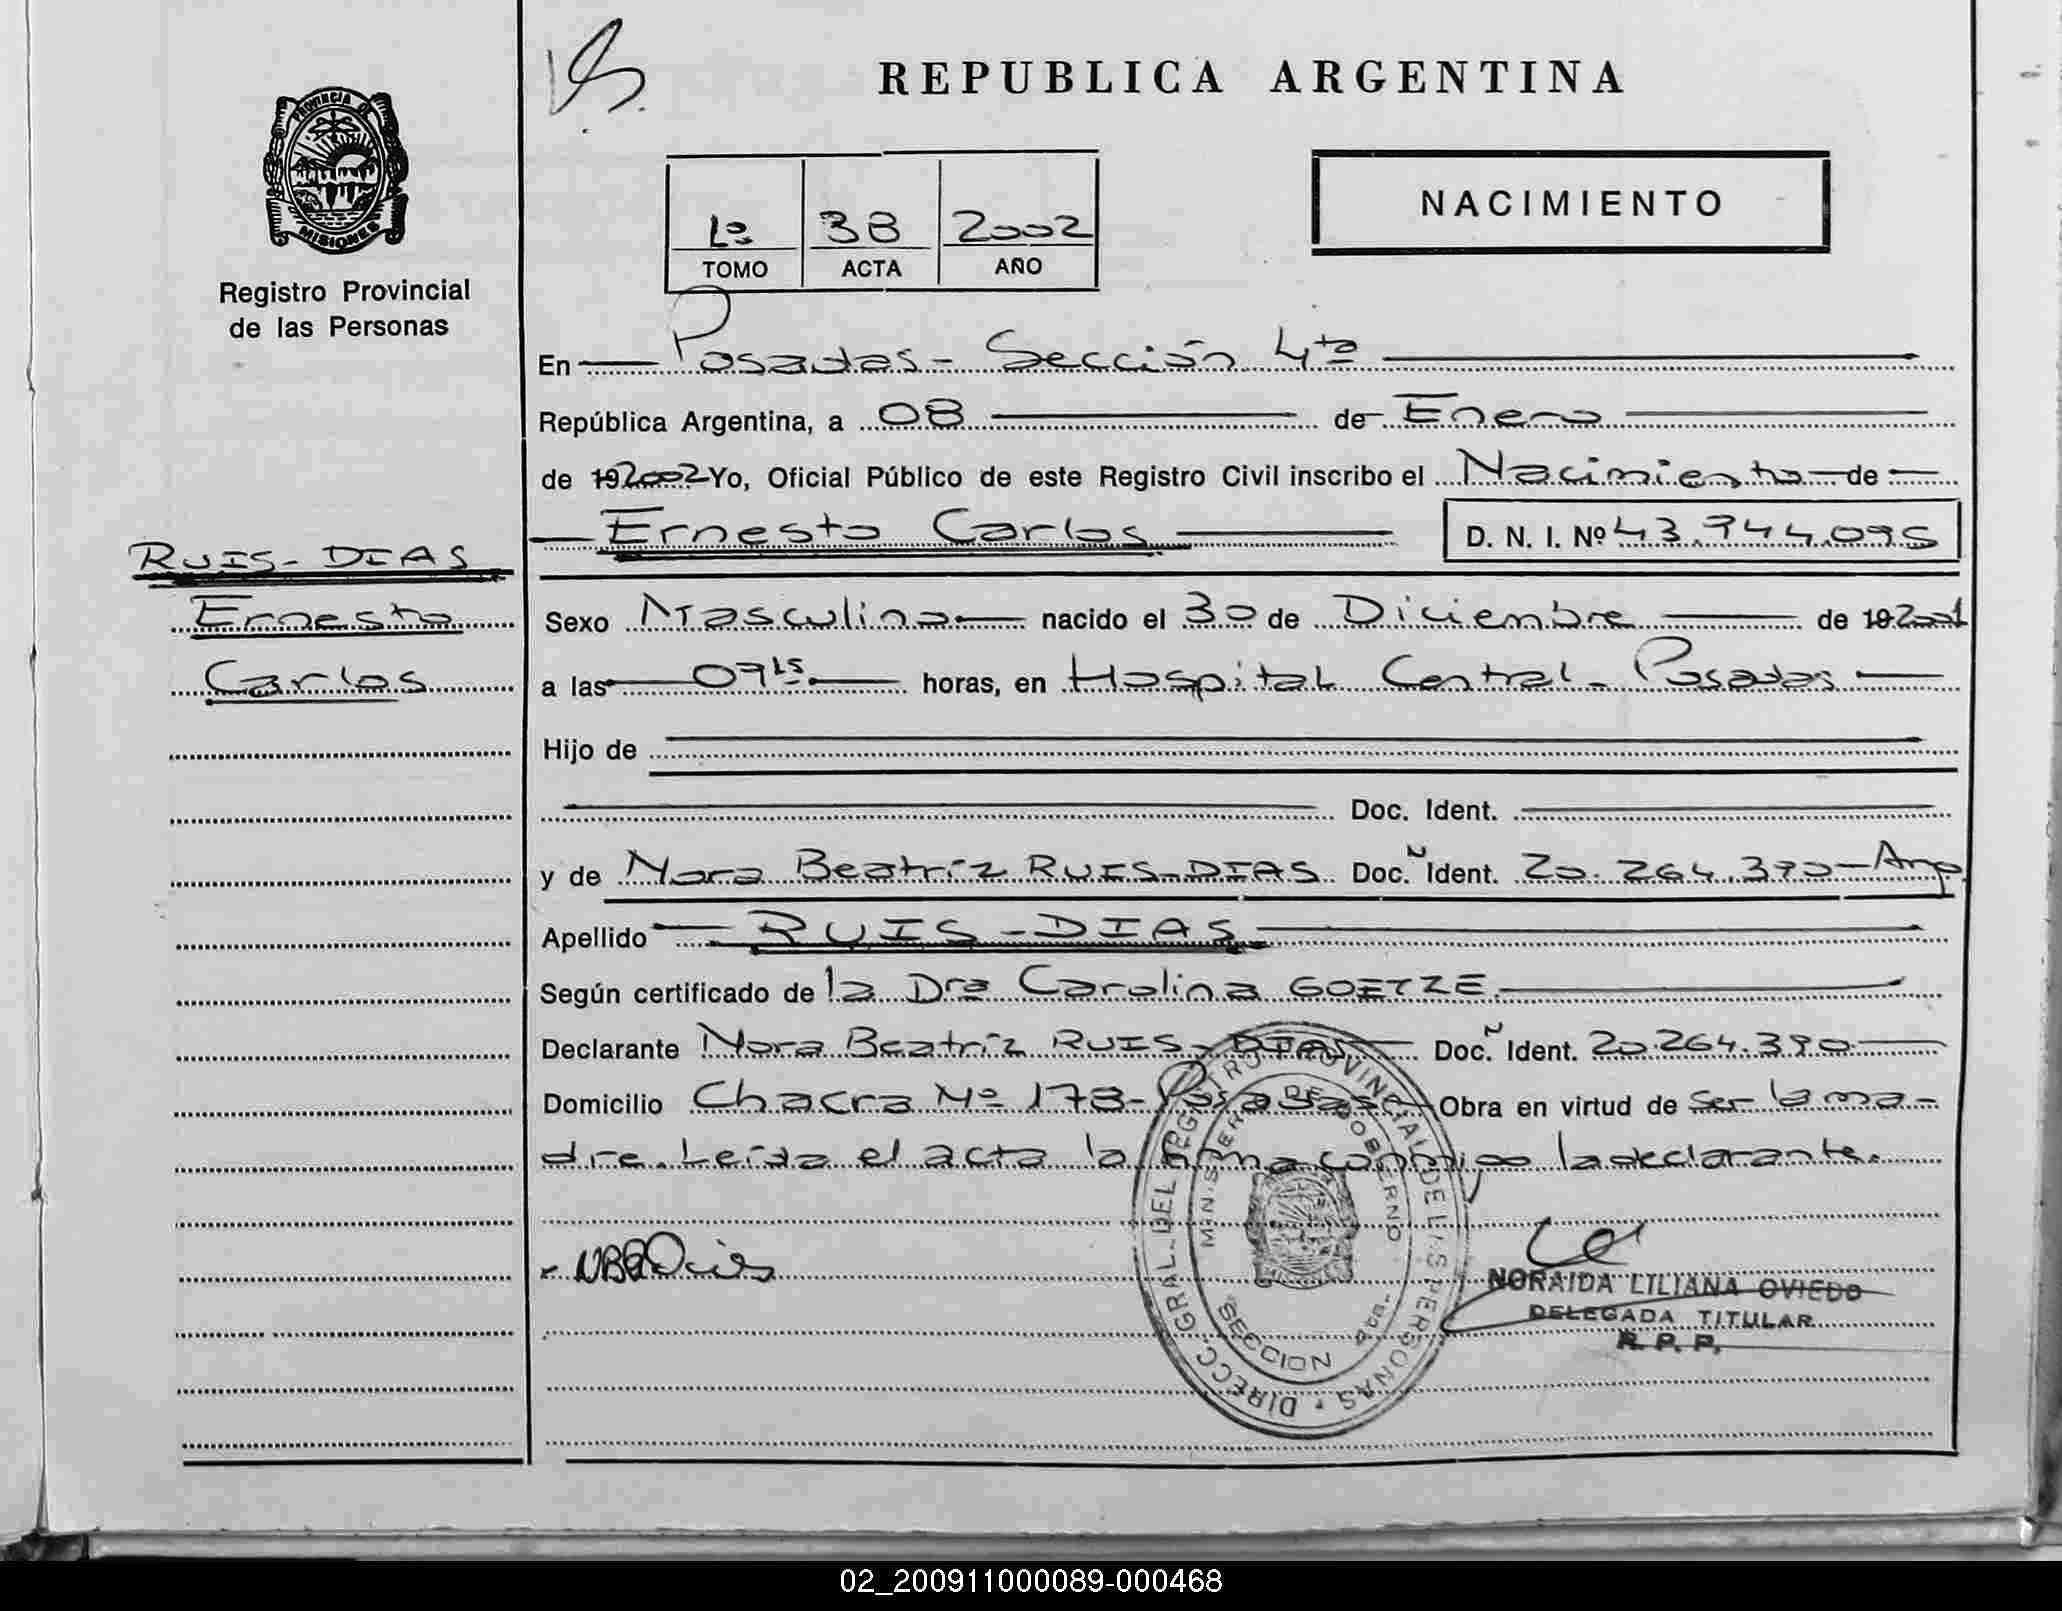 REPUBLICA ARGENTINA
PROVINCIA DE
MISIONES
Registro Provincial
de las Personas
1º 38 2002
TOMO ACTA AÑO
NACIMIENTO
En Posadas - Sección 4ta
República Argentina, a 08 de Enero
de 192002 Yo, Oficial Público de este Registro Civil inscribo el Nacimiento de
Ernesto Carlos D. N. I. Nº 43.944.095
RUIS-DIAS
Ernesto
Carlos
Sexo Masculino nacido el 30 de Diciembre de 192001
a las 09hs. horas, en Hospital Central - Posadas
Hijo de
Doc. Ident.
y de Nora Beatríz RUIS-DIAS Doc. Ident. 20.264.390 - Arg.
Apellido RUIS-DIAS
Según certificado de la Dra Carolina GOETZE.
Declarante Nora Beatríz RUIS-DIAS Doc. Ident. 20.264.390
Domicilio Chacra Nº 178 - Posadas Obra en virtud de ser la ma-
dre. Leída el acta la firma conmigo la declarante.
DIRECC. GRAL. DEL REGISTRO PROVINCIAL DE LAS PERSONAS
MINISTERIO DE GOBIERNO
SECCION 4ta.
NORAIDA LILIANA OVIEDO
DELEGADA TITULAR
R. P. P.
02_200911000089-000468